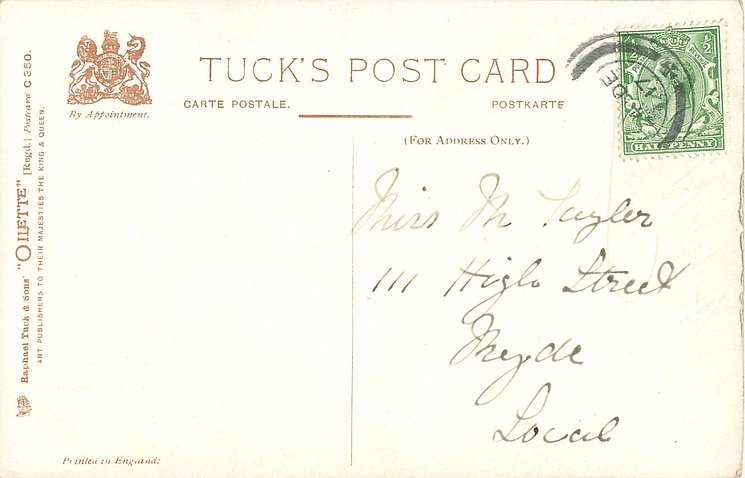 TUCK'S POST CARD
CARTE POSTALE.
POSTKARTE
By Appointment.
(FOR ADDRESS ONLY.)
Raphael Tuck & Sons' "OILETTE" [Regd.] Postcard C 350.
ART PUBLISHERS TO THEIR MAJESTIES THE KING & QUEEN.
½ ½
HALFPENNY
DE
17
Miss M Tayler
111 High Street
Ryde
Local
Printed in England.